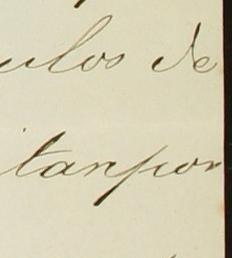 ulos de
tanpor